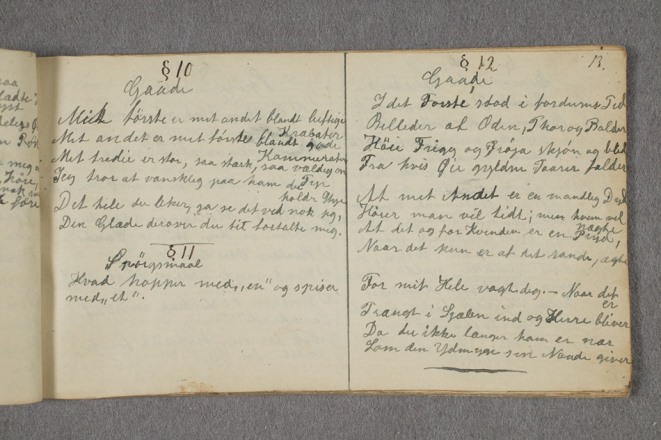 § 10
Gaade
Mit første er mit andet blandt luftige
Krabater
Mit andet er mit første blandt gode
Kammerater
Mit tredie er stor, saa stærk, saa vældig en
Fyr
Jeg tror at vanskelig paa ham du
holdt Styr
Det hele du leker, ja se det ved nok jeg,
Den Glæde derover du tit fortalte mig.
§ 11
Spörgsmaal
Hvad hopper med „en" og spiser
med „et".
§ 12
13.
Gaade
I det Første, stod i fordums Tid
Billeder af Odin, Thor og Balder
Höie Frigg og Fröja skjön og blid
Fra hvis Öie gyldne Taarer falder
At mit Andet er en mandlig Dyd
Hörer man vil tidt; men hvem vil
nægte
At det og for Kvinden er en Pryd,
Naar det kun er af det sande, ægte
For mit Hele vogt dig. – Naar det
er
Trængt i Sjælen ind og Herre bliver
Da du ikke længer ham er nær
Som den Ydmyge sin Naade giver